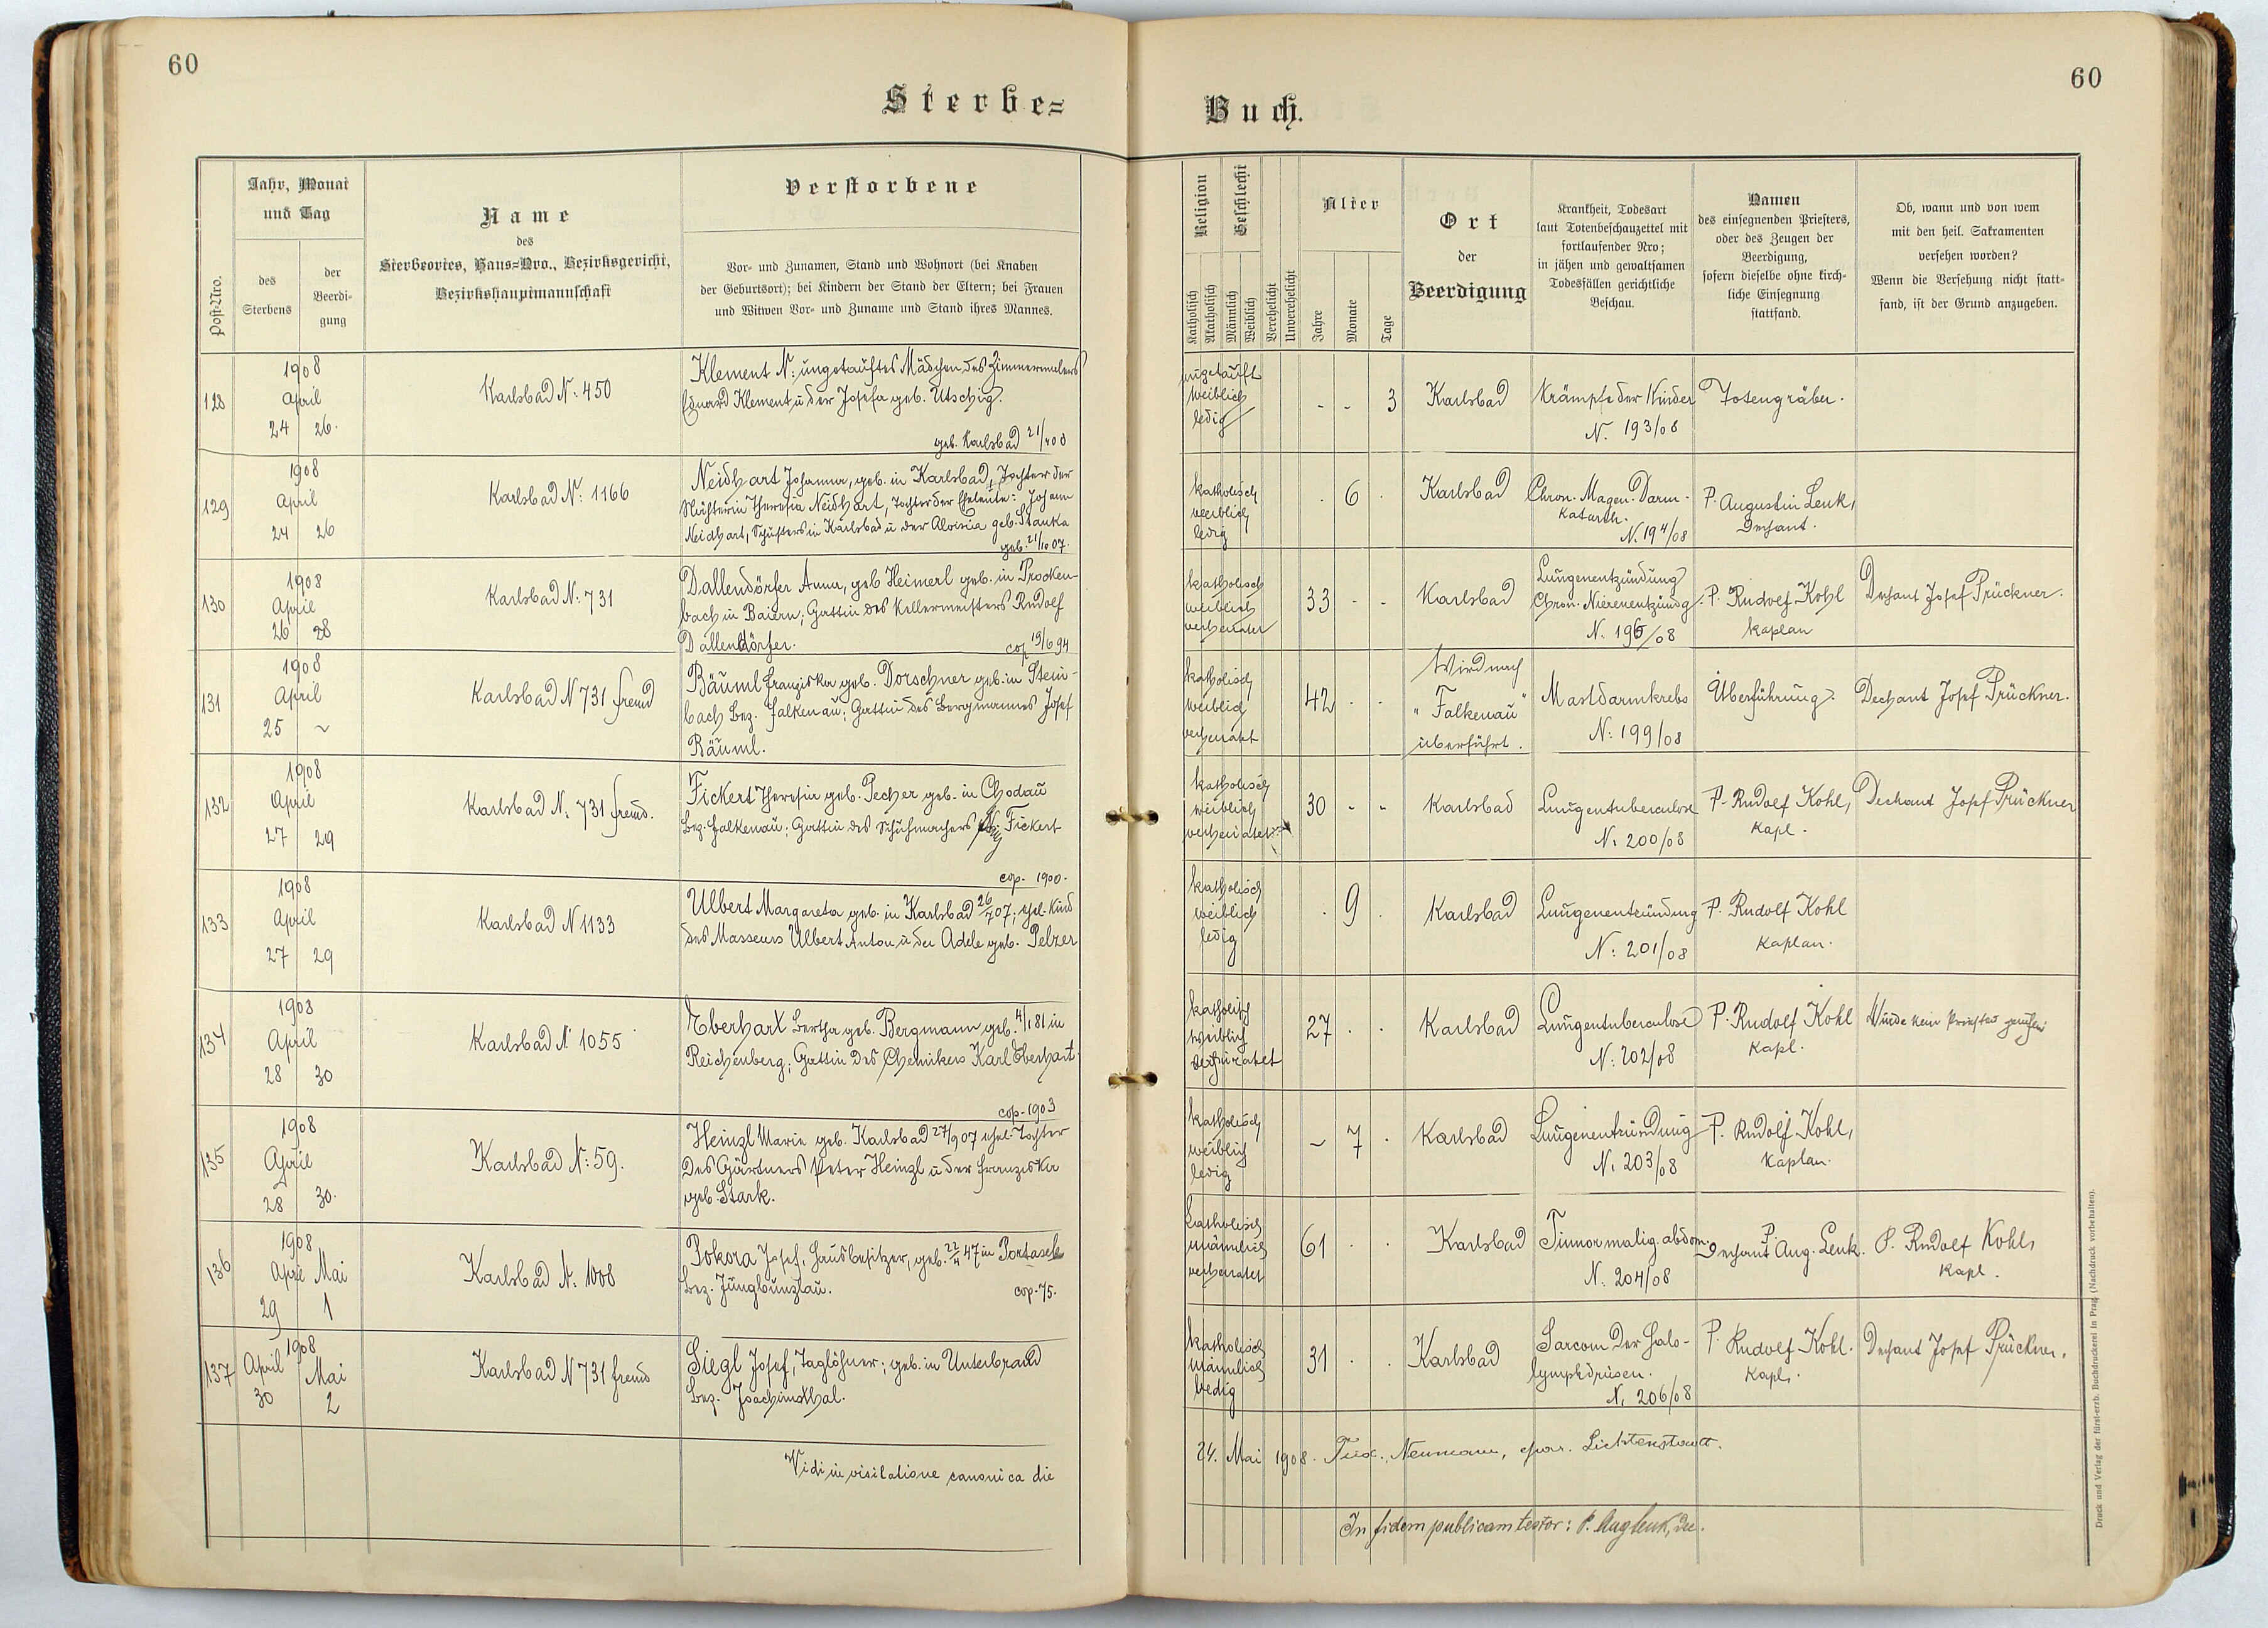 60
60
Sterbe=
Buch.
Post-Nro.
Jahr, Monat
und Tag
des
Sterbens
der
Beerdi-
gung
Name
des
Sterbeortes, Haus=Nro., Bezirksgericht,
Bezirkshauptmannschaft
Verstorbene
Vor- und Zunamen, Stand und Wohnort (bei Knaben
der Geburtsort); bei Kindern der Stand der Eltern; bei Frauen
und Witwen Vor- und Zuname und Stand ihres Mannes.
Religion
Katholisch
Akatholisch
Geschlecht
Männlich
Weiblich
Verehelicht
Unverehelicht
Alter
Jahre
Monate
Tage
Ort
der
Beerdigung
Krankheit, Todesart
laut Totenbeschauzettel mit
fortlaufender Nro;
in jähen und gewaltsamen
Todesfällen gerichtliche
Beschau.
Namen
des einsegnenden Priesters,
oder des Zeugen der
Beerdigung,
sofern dieselbe ohne kirch-
liche Einsegnung
stattfand.
Ob, wann und von wem
mit den heil. Sakramenten
versehen worden?
Wenn die Versehung nicht statt-
fand, ist der Grund anzugeben.
128
1908
April
24 26.
Karlsbad N: 450
Klement N: ungetauftes Mädchen des Zimmermalers
Eduard Klement u der Josefa geb. Utschig.
geb. Karlsbad 21/4 08
ungetauft
weiblich
ledig
- - 3
Karlsbad
Krämpfe der Kinder
N. 193/08
Totengräber.
129
1908
April
24 26
Karlsbad N: 1166
Neidhart Johanna, geb. in Karlsbad, Tochter der
Theresia Neidhart, Tochter der Eheleute: Johann
Neidhart, Schusters in Karlsbad u der Aloisia geb. Stanka
geb. 21/10 07.
katholisch
weiblich
ledig
. 6 .
Karlsbad
Chron. Magen. Darm-
katarrh.
N. 194/08
P. Augustin Lenk,
Dechant.
130
1908
April
26 28
Karlsbad N: 731
Dallendörfer Anna, geb Heimerl geb. in Procken-
bach in Baiern; Gattin des Kellermeisters Rudolf
Dallendörfer.
cop 19/6 94
katholisch
weiblich
verheiratet
33 - -
Karlsbad
Lungenentzündung
Chron. Nierenentzündg.
N. 196/08
P. Rudolf Kohl
Kaplan
Dechant Josef Prückner.
131
1908
April
25 ~
Karlsbad N 731 fremd
Bäuml Franziska geb. Dorschner geb. in Stein-
bach Bez. Falkenau; Gattin des Bergmannes Josef
Bäuml.
katholisch
weiblich
verheirat
42 . .
Wird nach
"Falkenau"
überführt.
Mastdarmkrebs
N: 199/08
Überführung.
Dechant Josef Prückner.
132
1908
April
27 29
Karlsbad N. 731 fremd.
Fickert Theresia geb. Pecher geb. in Chodau
Bez. Falkenau; Gattin des Schuhmachers Fickert
cop. 1900.
katholisch
weiblich
verheiratet
30 - -
Karlsbad
Lungentuberculose
N. 200/08
P. Rudolf Kohl,
Kapl.
Dechant Josef Prückner
133
1908
April
27 29
Karlsbad N 1133
Ulbert Margareta geb. in Karlsbad 26/7 07; ehel. Kind
des Masseurs Ulbert Anton u der Adele geb. Pelzer
katholisch
weiblich
ledig
. 9 .
Karlsbad
Lungenentzündung
N: 201/08
P. Rudolf Kohl
Kaplan.
134
1908
April
28 30
Karlsbad N. 1055
Eberhart Bertha geb. Bergmann geb. 4/1 81 in
Reichenberg; Gattin des Chemikers Karl Eberhart
cop. 1903
katholisch
weiblich
verheiratet
27 . .
Karlsbad
Lungentuberculose
N: 202/08
P. Rudolf Kohl
Kapl.
Wurde kein Priester gerufen
135
1908
April
28 30.
Karlsbad N: 59.
Heinzl Marie geb. Karlsbad 27/9 07 ehel. Tochter
des Gärtners Peter Heinzl u der Franziska
geb. Stark.
katholisch
weiblich
ledig
~ 7 .
Karlsbad
Lungenentzündung
N. 203/08
P. Rudolf Kohl,
Kaplan.
136
1908
April Mai
29 1
Karlsbad N. 1008
Pokora Josef, Hausbesitzer, geb. 47 in
Bez. Jungbunzlau.
cop. 75.
katholisch
männlich
verheiratet
61 . .
Karlsbad
Tumor malig. abdom.
N. 204/08
P.
Dechant Aug. Lenk.
P. Rudolf Kohl,
Kapl.
137
1908
April Mai
30 2
Karlsbad N 731 fremd
Siegl Josef, Taglöhner; geb. in Unterbrand
Bez. Joachimsthal.
katholisch
männlich
ledig
31 . .
Karlsbad
Sarcom der Hals-
lymphdrüsen.
N. 206/08
P. Rudolf Kohl.
Kapl.
Dechant Josef Prückner.
Vidi in visitatione canonica die
24. Mai 1908. Neumann, Lichtenstadt.
In fidem publicam testor: P. Aug Lenk, Dec.
Druck und Verlag der fürst-erzb. Buchdruckerei in Prag. (Nachdruck vorbehalten).